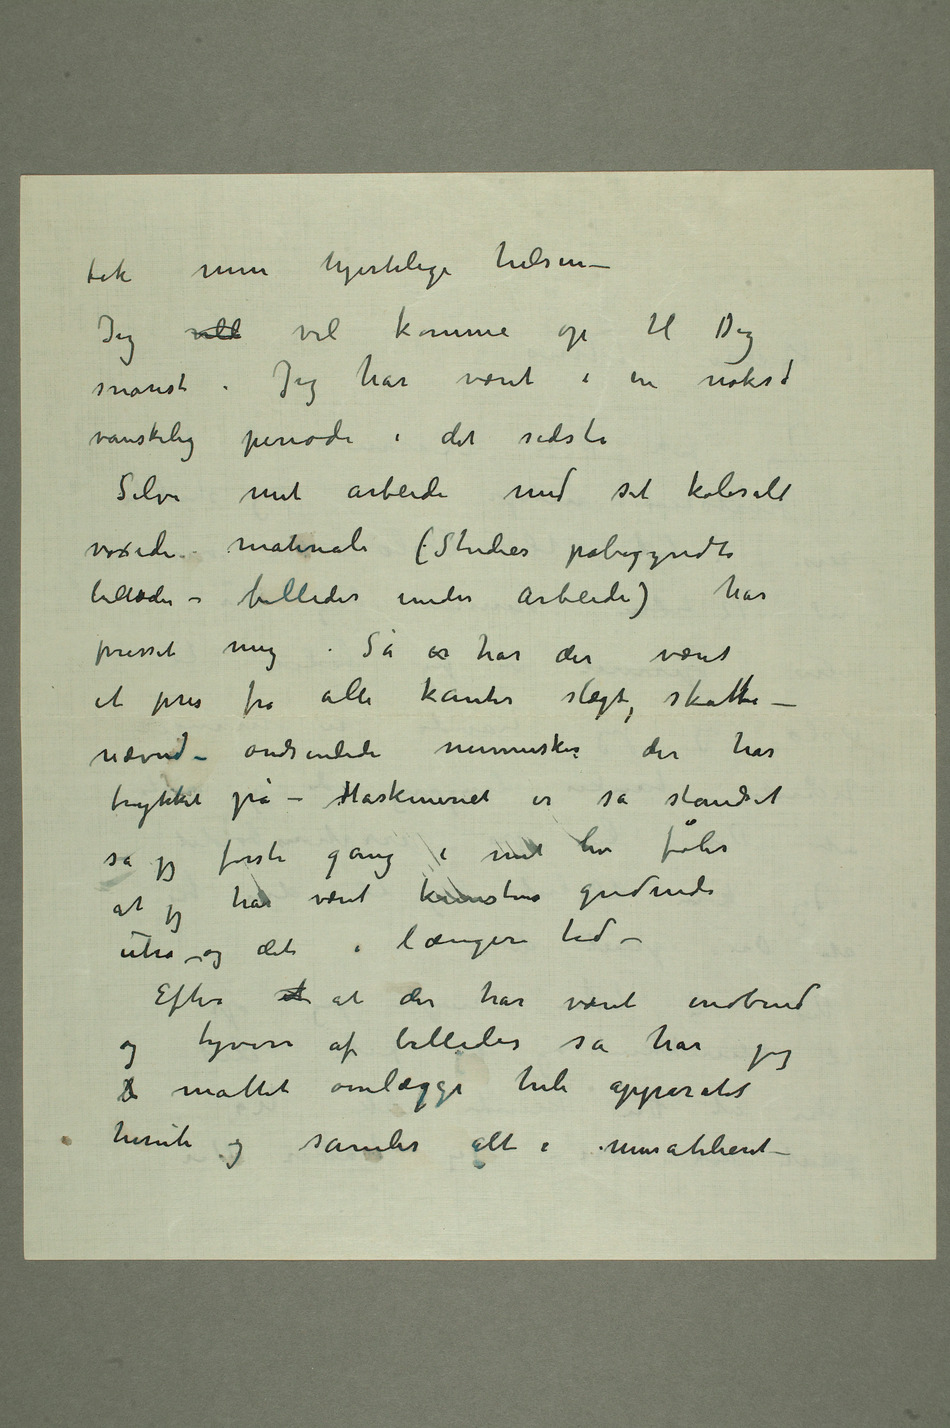 tek min hjertelige hilsen –
Jeg vill vil komme op til Dig
snarest . Jeg har været i en nokså
vanskelig periode i det sidste
Selve mit arbeide med sit kolosalt
voxende materiale (Studier påbegyndte
billeder – billeder under arbeide) har
presset mig . Så er har der været
et pres fra alle kanter slægt, skatte –
nævnd – andsenlede mennesker der har
trykket på – Maskineriet er så standset
så jeg første gang i mit liv føler
at jeg har været kunstens gudinde
utro – og det i længere tid –
Efter et at der har været indbrud
og tyveri af billeder så har jeg
måttet omlægge hele apparatet
herute og samler alt i muratelieret –